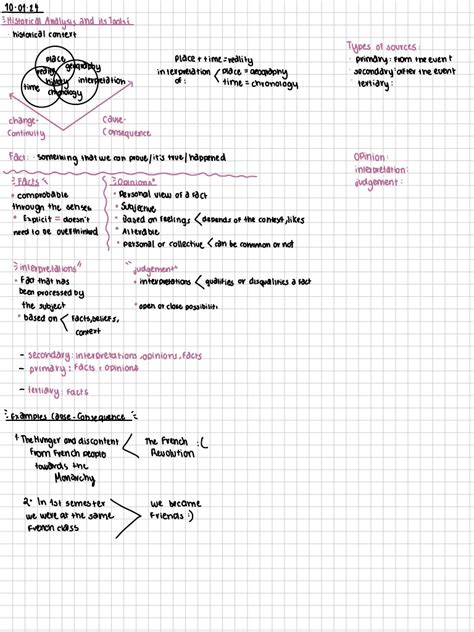 10.01.24
Historical Analysis and its Tools
· historical context
place
geography
reality
history
interpretation
time
chronology
change-
Continuity
Cause-
Consequence
place + time = reality
interpretation
of:
place = geography
time = chronology
Types of sources:
· primary: from the event
· secondary: after the event
· tertiary:
Fact: something that we can prove/it's true/happened
Opinion:
interpretation:
judgement:
Facts
• comprobable
through the senses
• Explicit = doesn't
need to be
Opinions
• Personal view of a fact
• Subjective
• Based on feelings < depends of the context, likes
• Alterable
• personal or collective < can be common or not
"interpretations"
• Fact that has
been processed by
the subject
• based on < Facts, beliefs,
context
"judgement"
• interpretations < qualifies or disqualifies a fact
• open or close possibiliti
- secondary: interpretations, opinions, facts
- primary: Facts & opinions
- tertiary: Facts
Examples Cause-Consequence
1. The Hunger and discontent
From French people
towards the
Monarchy
The French :(
Revolution
2. In 1st semester
we were at the same
French class
we became
Friends :)